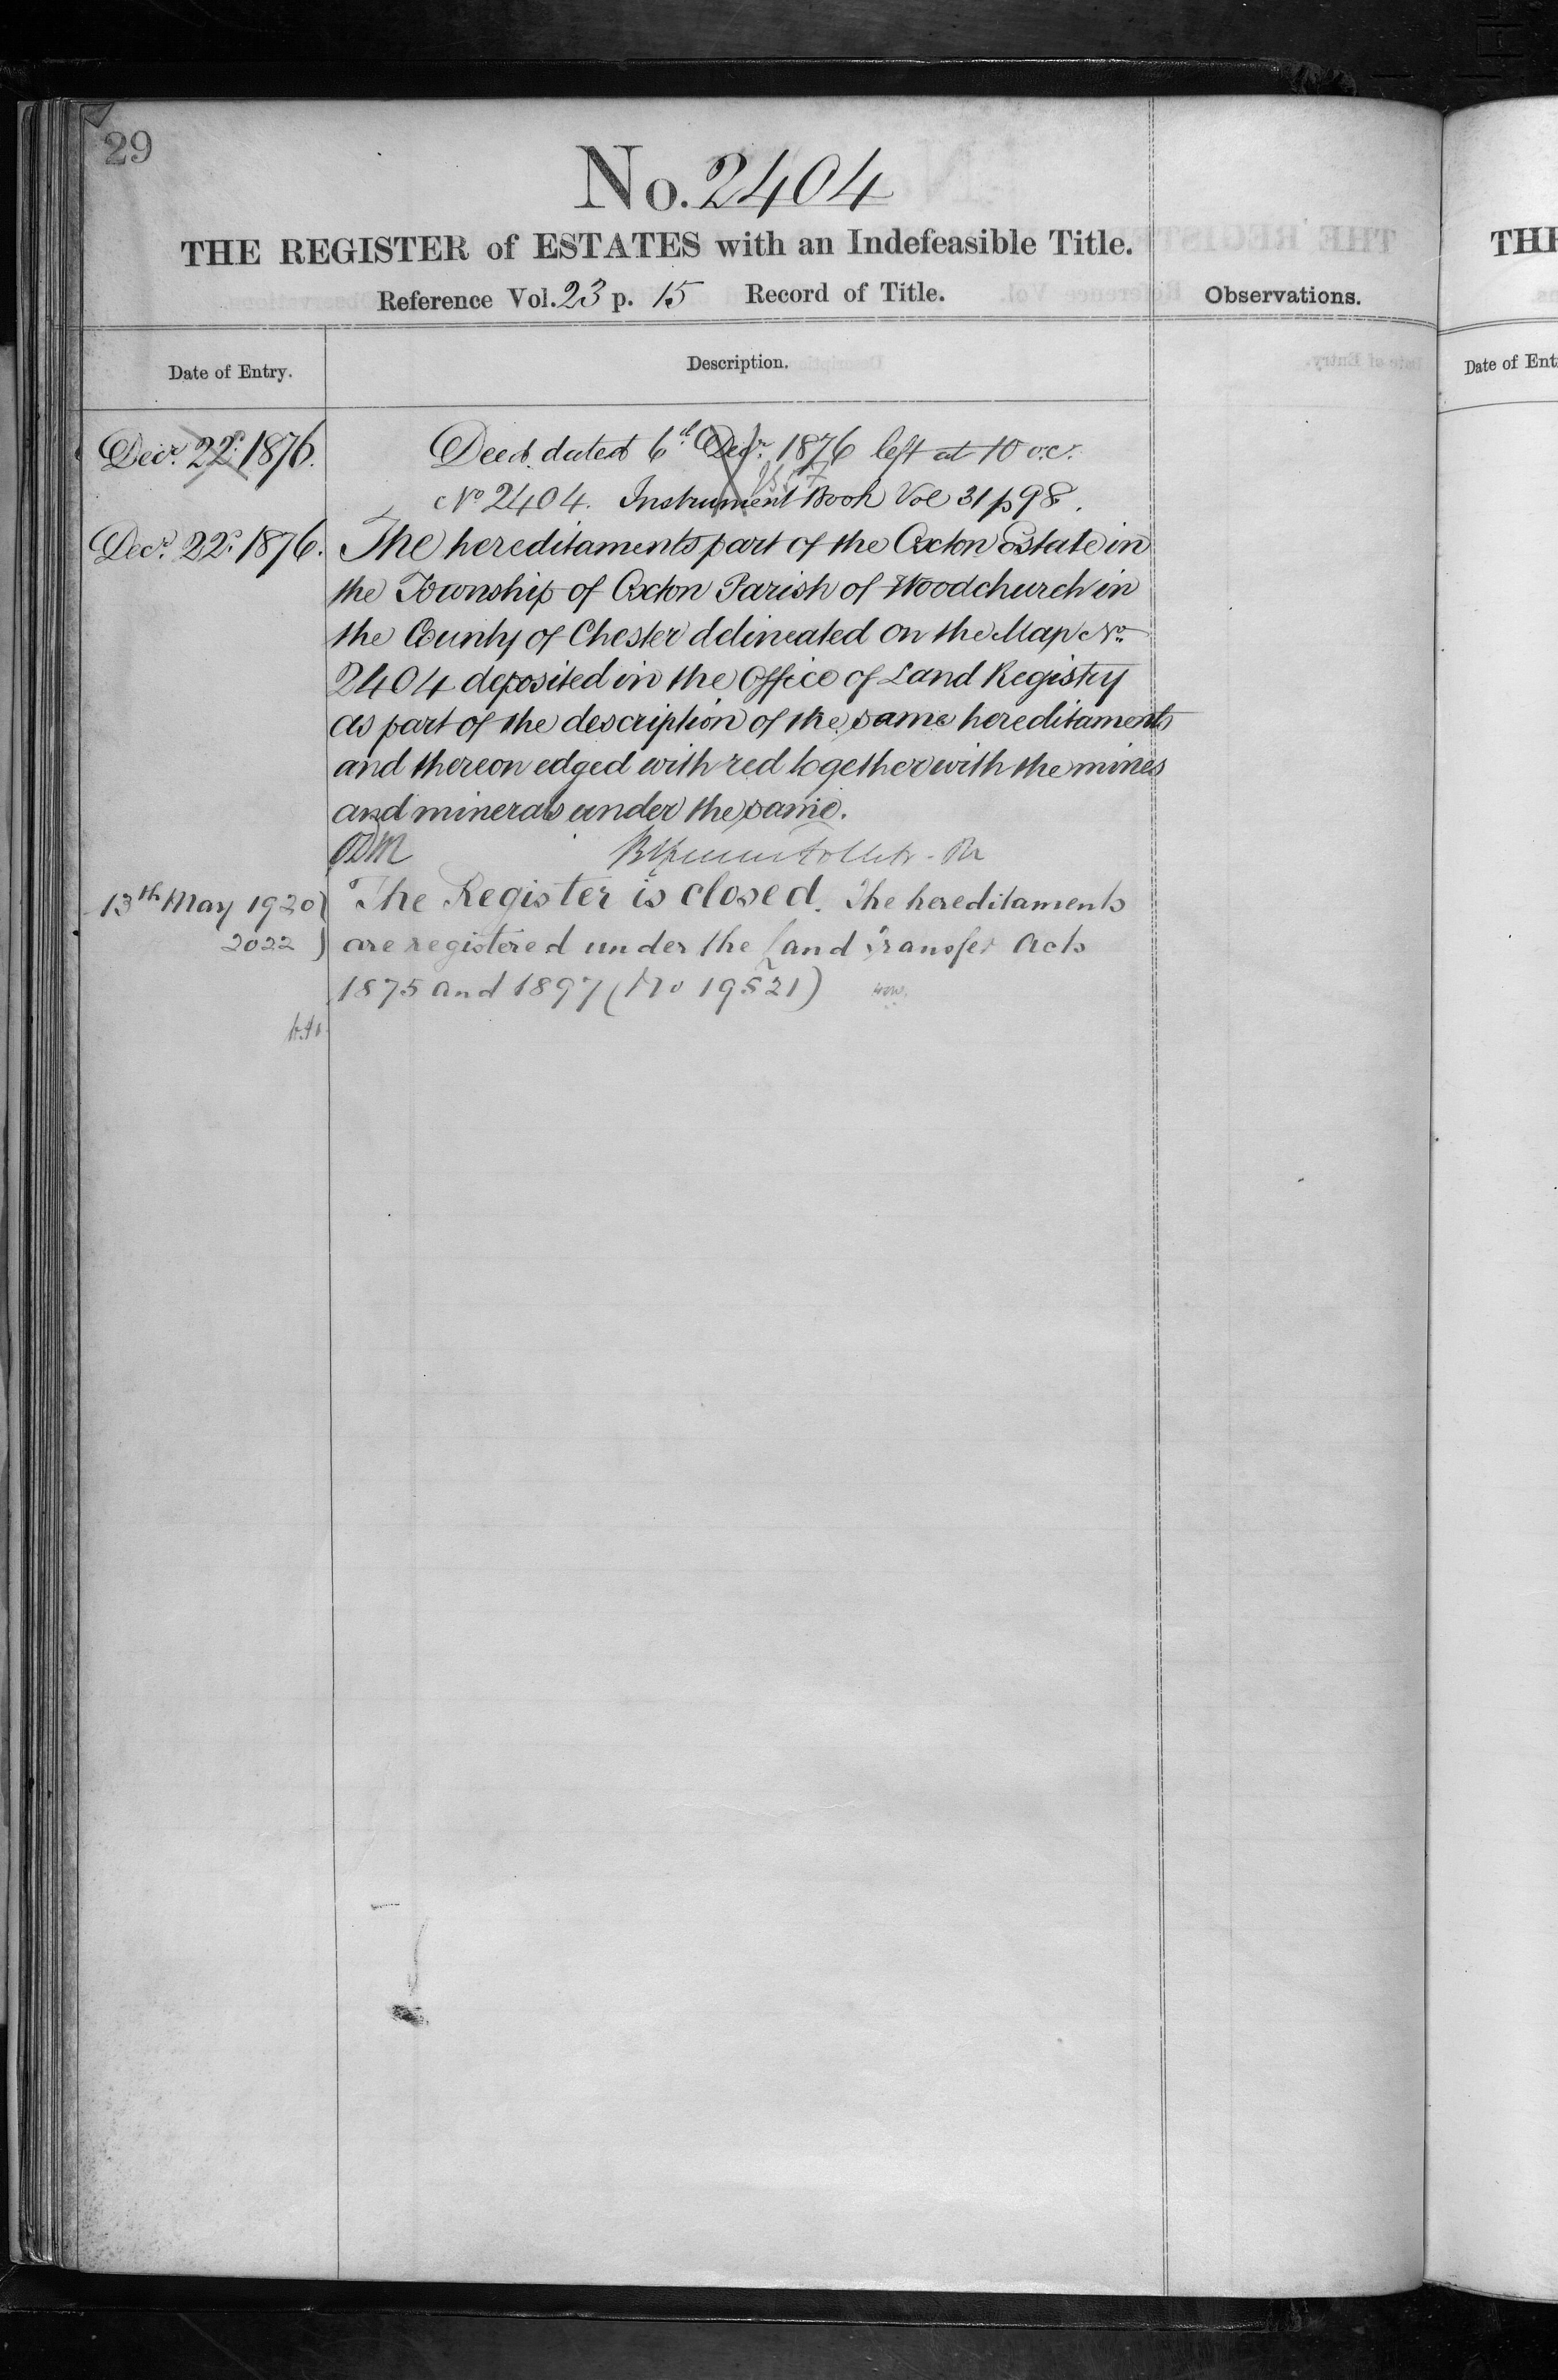 29
No. 2404
THE REGISTER of ESTATES with an Indefeasible Title.
Reference Vol. 23 p. 15 Record of Title.
Observations.
Date of Entry.
Description.
Decr. 22d. 1876.
Deed dated 6th Decr. 1876 left at 10 o.c.
No 2404. Instrument Book Vol 31 p 98.
Decr. 22d. 1876.
The hereditaments part of the Oxton Estate in
the Township of Oxton Parish of Woodchurch in
the County of Chester delineated on the Map No.
2404 deposited in the Office of Land Registry
as part of the description of the same hereditaments
and thereon edged with red together with the mines
and minerals under the same.
13th May 1920
2022
The Register is closed. The hereditaments
are registered under the Land Transfer Acts
1875 and 1897 (No 19521)
THE
Date of Ent